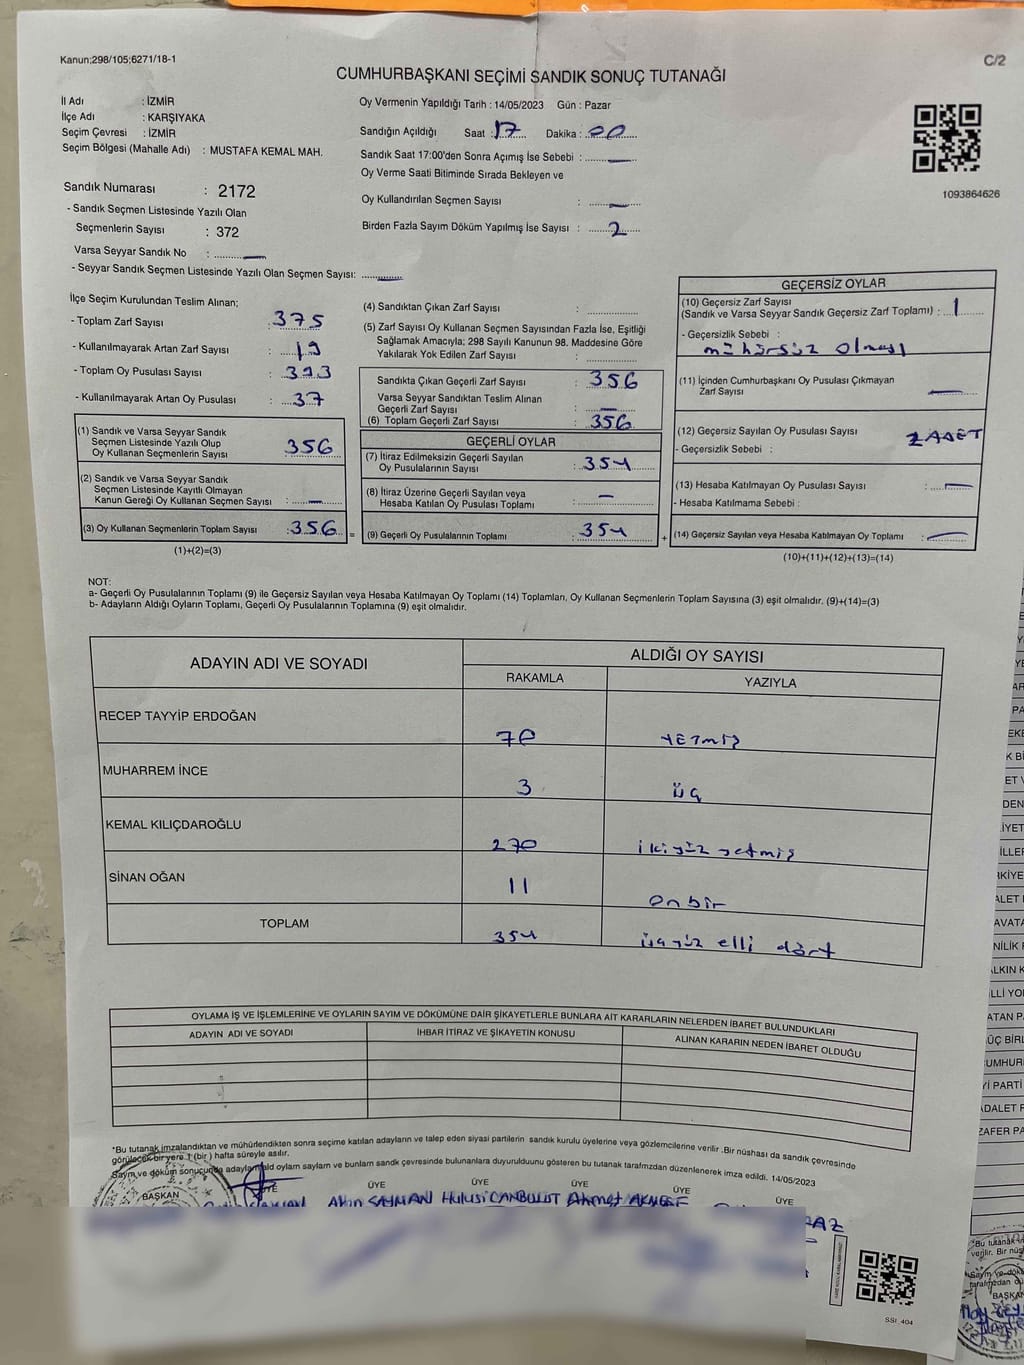 Kanun;298/105;6271/18-1
C/2
CUMHURBAŞKANI SEÇİMİ SANDIK SONUÇ TUTANAĞI
İl Adı : İZMİR
İlçe Adı : KARŞIYAKA
Seçim Çevresi : İZMİR
Seçim Bölgesi (Mahalle Adı) : MUSTAFA KEMAL MAH.
Sandık Numarası : 2172
- Sandık Seçmen Listesinde Yazılı Olan
Seçmenlerin Sayısı : 372
Varsa Seyyar Sandık No :
- Seyyar Sandık Seçmen Listesinde Yazılı Olan Seçmen Sayısı:
Oy Vermenin Yapıldığı Tarih : 14/05/2023 Gün : Pazar
Sandığın Açıldığı Saat : 17 Dakika : 00
Sandık Saat 17:00'den Sonra Açımış İse Sebebi :
Oy Verme Saati Bitiminde Sırada Bekleyen ve
Oy Kullandırılan Seçmen Sayısı :
Birden Fazla Sayım Döküm Yapılmış İse Sayısı : 2
1093864626
İlçe Seçim Kurulundan Teslim Alınan;
- Toplam Zarf Sayısı : 375
- Kullanılmayarak Artan Zarf Sayısı : 19
- Toplam Oy Pusulası Sayısı : 393
- Kullanılmayarak Artan Oy Pusulası : 37
(1) Sandık ve Varsa Seyyar Sandık
Seçmen Listesinde Yazılı Olup
Oy Kullanan Seçmenlerin Sayısı : 356
(2) Sandık ve Varsa Seyyar Sandık
Seçmen Listesinde Kayıtlı Olmayan
Kanun Gereği Oy Kullanan Seçmen Sayısı :
(3) Oy Kullanan Seçmenlerin Toplam Sayısı : 356
(1)+(2)=(3)
(4) Sandıktan Çıkan Zarf Sayısı :
(5) Zarf Sayısı Oy Kullanan Seçmen Sayısından Fazla İse, Eşitliği
Sağlamak Amacıyla; 298 Sayılı Kanunun 98. Maddesine Göre
Yakılarak Yok Edilen Zarf Sayısı :
Sandıkta Çıkan Geçerli Zarf Sayısı : 356
Varsa Seyyar Sandıktan Teslim Alınan
Geçerli Zarf Sayısı :
(6) Toplam Geçerli Zarf Sayısı : 356
GEÇERLİ OYLAR
(7) İtiraz Edilmeksizin Geçerli Sayılan
Oy Pusulalarının Sayısı : 354
(8) İtiraz Üzerine Geçerli Sayılan veya
Hesaba Katılan Oy Pusulası Toplamı :
= (9) Geçerli Oy Pusulalarının Toplamı : 354 +
GEÇERSİZ OYLAR
(10) Geçersiz Zarf Sayısı
(Sandık ve Varsa Seyyar Sandık Geçersiz Zarf Toplamı) : 1
- Geçersizlik Sebebi :
mühürsüz olması
(11) İçinden Cumhurbaşkanı Oy Pusulası Çıkmayan
Zarf Sayısı :
(12) Geçersiz Sayılan Oy Pusulası Sayısı
- Geçersizlik Sebebi :
(13) Hesaba Katılmayan Oy Pusulası Sayısı :
- Hesaba Katılmama Sebebi :
(14) Geçersiz Sayılan veya Hesaba Katılmayan Oy Toplamı :
(10)+(11)+(12)+(13)=(14)
NOT:
a- Geçerli Oy Pusulalarının Toplamı (9) ile Geçersiz Sayılan veya Hesaba Katılmayan Oy Toplamı (14) Toplamları, Oy Kullanan Seçmenlerin Toplam Sayısına (3) eşit olmalıdır. (9)+(14)=(3)
b- Adayların Aldığı Oyların Toplamı, Geçerli Oy Pusulalarının Toplamına (9) eşit olmalıdır.
ADAYIN ADI VE SOYADI ALDIĞI OY SAYISI
RAKAMLA YAZIYLA
RECEP TAYYİP ERDOĞAN 70 YETMİŞ
MUHARREM İNCE 3 üç
KEMAL KILIÇDAROĞLU 270 ikiyüz yetmiş
SİNAN OĞAN 11 onbir
TOPLAM 354 üçyüz elli dört
OYLAMA İŞ VE İŞLEMLERİNE VE OYLARIN SAYIM VE DÖKÜMÜNE DAİR ŞİKAYETLERLE BUNLARA AİT KARARLARIN NELERDEN İBARET BULUNDUKLARI
ADAYIN ADI VE SOYADI İHBAR İTİRAZ VE ŞİKAYETİN KONUSU ALINAN KARARIN NEDEN İBARET OLDUĞU
*Bu tutanak imzalandıktan ve mühürlendikten sonra seçime katılan adayların ve talep eden siyasi partilerin sandık kurulu üyelerine veya gözlemcilerine verilir .Bir nüshası da sandık çevresinde
görülecek bir yere 1 (bir) hafta süreyle asılır.
Sayım ve döküm sonucunda adayların aldığı oyların sayıları ve bunların sandık çevresinde bulunanlara duyurulduğunu gösteren bu tutanak tarafımızdan düzenlenerek imza edildi. 14/05/2023
BAŞKAN ÜYE ÜYE ÜYE ÜYE ÜYE
Akın SAYMAN Hulusi CANBULUT Ahmet
SSI_404